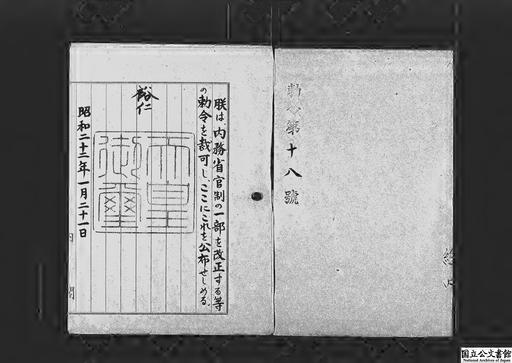 勅令第十八號
朕は内務省官制の一部を改正する等
の勅令を裁可し、ここにこれを公布せしめる。
裕仁
天皇御璽
昭和二十二年一月二十一日
内
閣
国立公文書館
National Archives of Japan